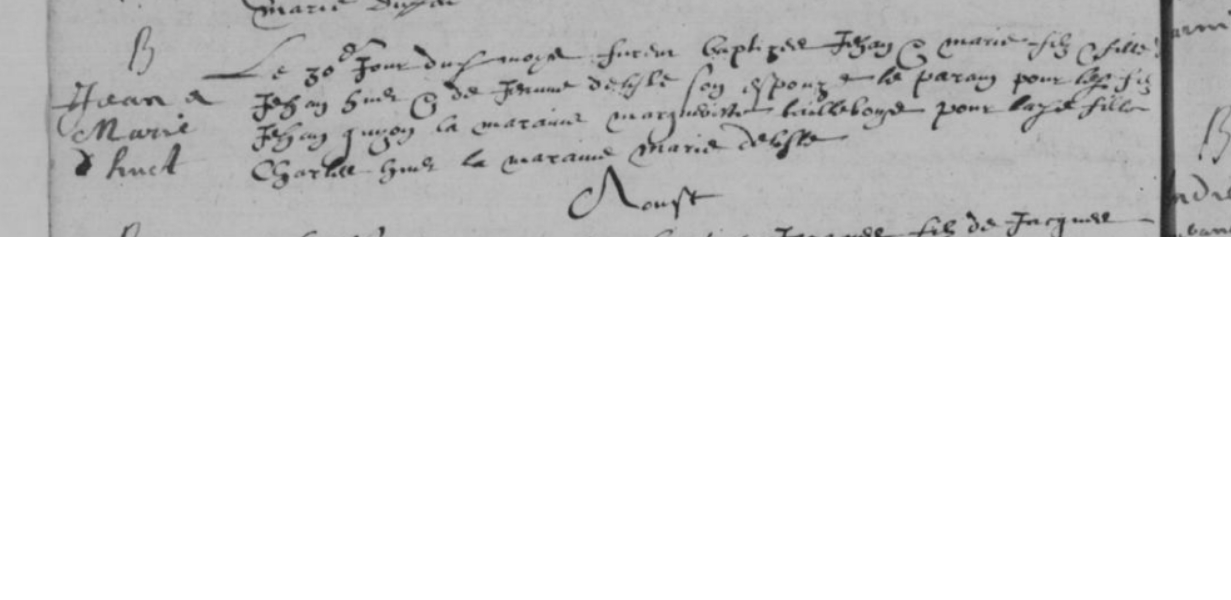 B
Jean &
Marie
d huet
Le 30e Jour dud moys furent baptizes Jehan & marie filz & fille
Jehan huet & de Jeanne delisle son espouze le parain pour led filz
Jehan guyon la maraine marguerite bailleboys pour lad fille
Charles huet la maraine Marie delisle
Aoust
filz de Jacques